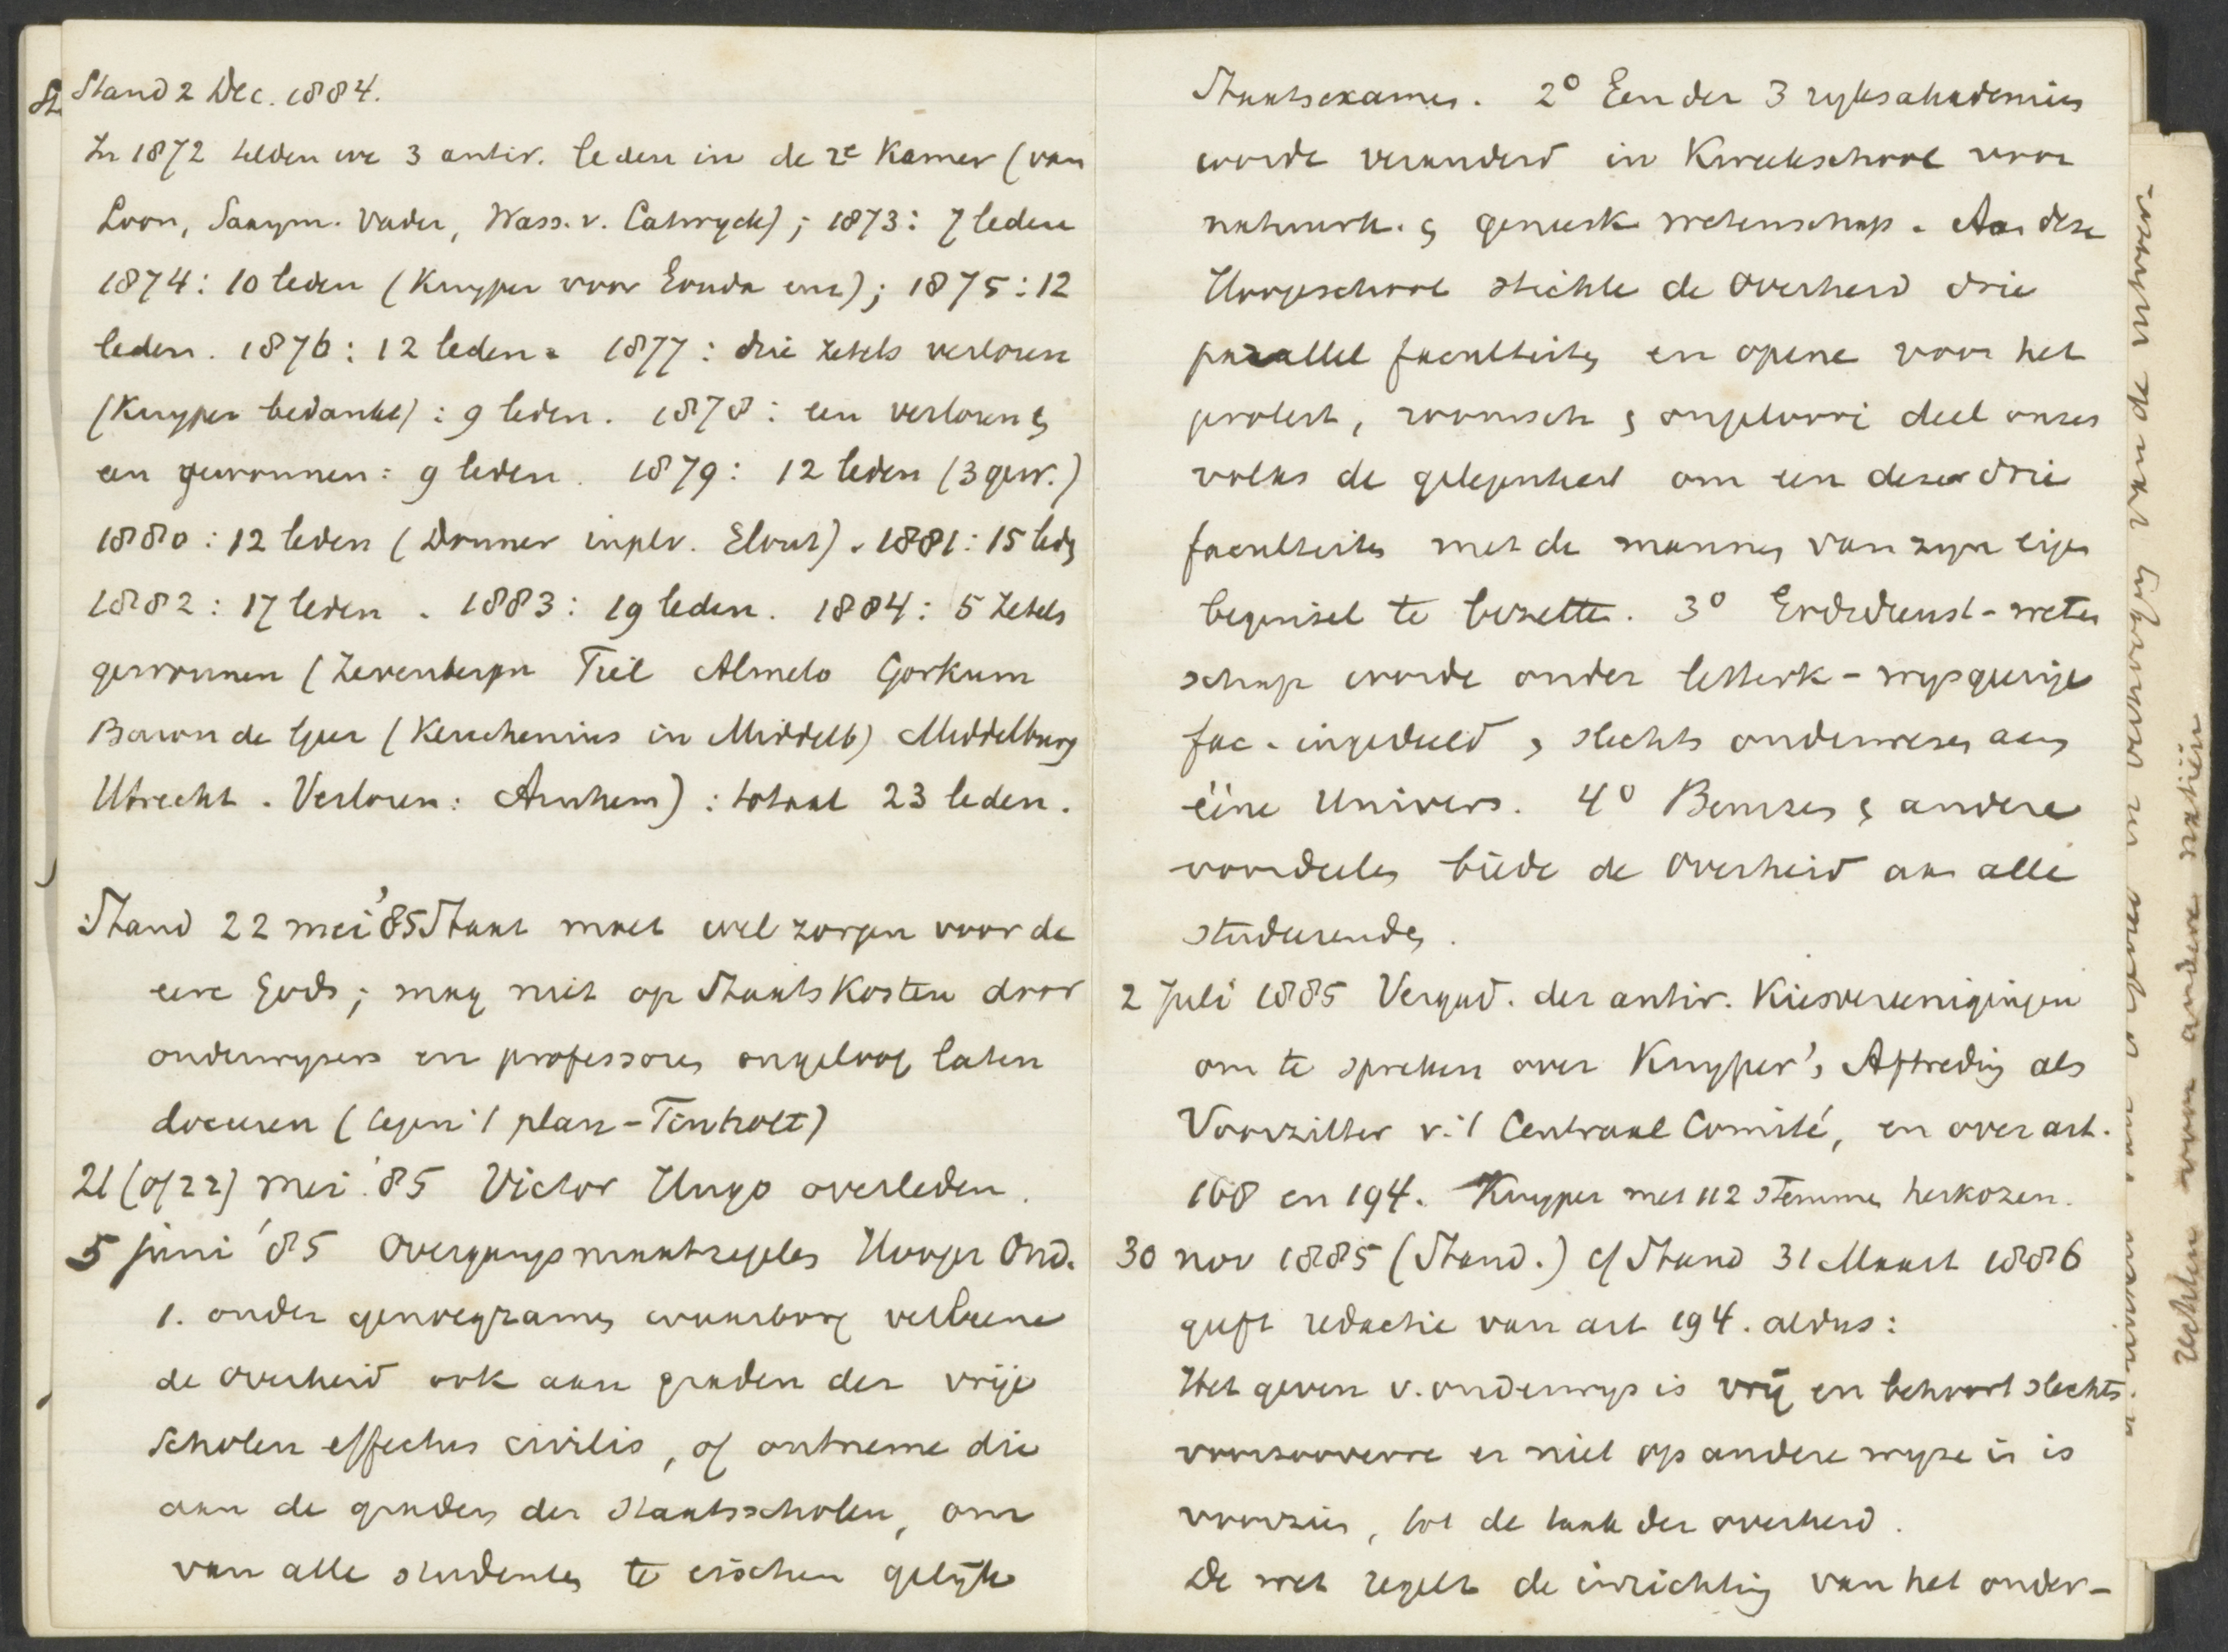 Stand 2 Dec. 1884.
In 1872 telden we 3 antir. leden in de 2e Kamer (van
Loon, Saaym. Vader, Wass. v. Catwyck); 1873: 7 leden
1874: 10 leden (Kuyper voor Gouda enz); 1875: 12
leden. 1876: 12 leden. 1877: drie zetels verloren
(Kuyper bedankt): 9 leden. 1878: een verloren en
een gewonnen: 9 leden. 1879: 12 leden (3 gew.)
1880: 12 leden (Donner in plv. Elout). 1881: 15 leden
1882: 17 leden. 1883: 19 leden. 1884: 5 zetels
gewonnen (Zevenbergen Tiel Almelo Gorkum
Baron de Geer (Keuchenius in Middelb) Middelburg
Utrecht. Verloren: Arnhem): totaal 23 leden.
Stand 22 mei '85 Staat moet wel zorgen voor de
eere Gods; mag niet op Staats Kosten door
onderwysers en professoren ongeloof laten
doceeren (tegen 't plan-Tinholt)
21 (of 22) mei '85 Victor Hugo overleden.
5 juni '85 Overgangsmaatregelen Hooger Ond.
1. onder genoegzamen waarborg verleene
de Overheid ook aan graden der vrije
Scholen effectus civilis, of ontneme die
aan de graden der Staatsscholen, om
van alle studenten te eischen gelijk
Staatsexamen. 2o Een der 3 ryksakademien
worde veranderd in Kweekschool voor
natuurk. en geneesk wetenschap. Aan deze
Hoogeschool stichte de Overheid drie
parallel faculteiten en opene voor het
protest, roomsch en ongeloovi deel onzes
volks de gelegenheid om een dezer drie
faculteiten met de mannen van zyn eigen
beginsel te bezetten. 3o Godsdienst-weten
schap worde onder letterk-wysgeerige
fac. ingedeeld, slechts onderwezen aan
ééne Univers. 4o Beurzen en andere
voordeelen biede de Overheid aan alle
studeerenden.
2 Juli 1885 Vergad. der antir. Kiesvereenigingen
om te spreken over Kuyper's Aftreding als
Voorzitter v. 't Centraal Comité, en over art.
168 en 194. Kuyper met 112 stemmen herkozen.
30 nov 1885 (Stand.) cf Stand 31 Maart 1886
geeft redactie van art 194. aldus:
Het geven v. onderwys is vrij en behoort slechts
voorzooverre er niet op andere wyze in is
voorzien, tot de taak der overheid.
De wet regelt de inrichting van het onder-
rechten voor andere natiën